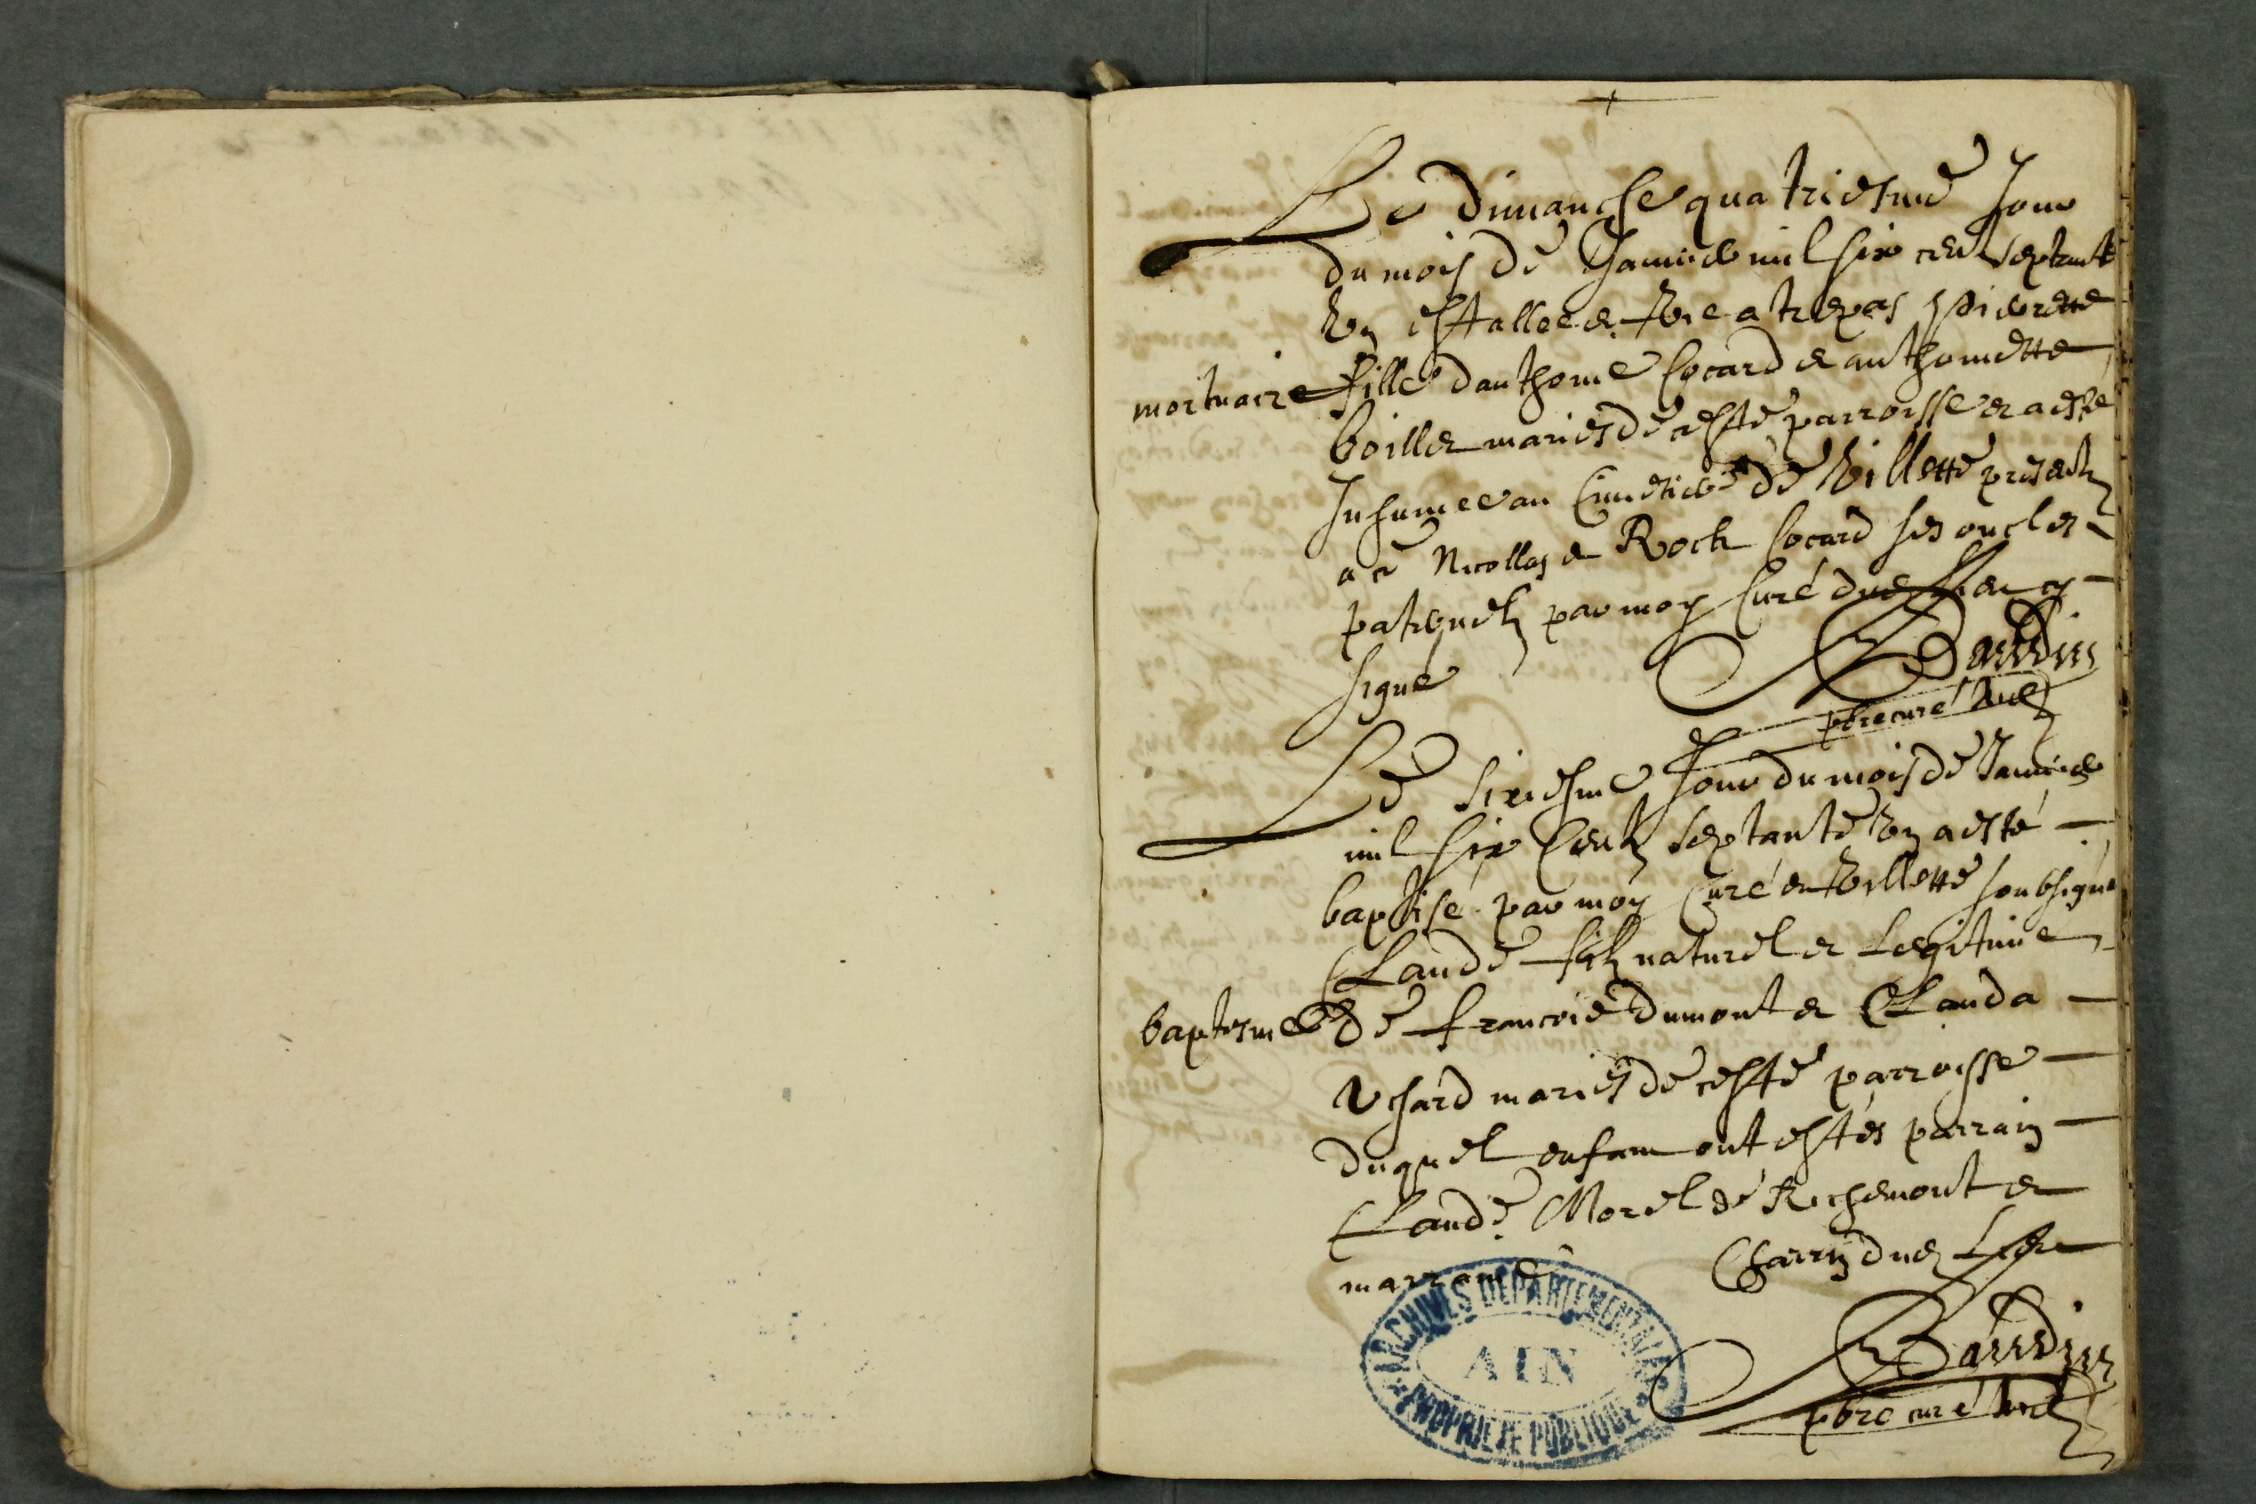 Le dimanche quatriesme Jour
du mois de Janvier mil six cent septante
Un est allee de vie a trepas pierrette
mortuaire
fille danthoine Cocard et anthoinette
boillet mariés de ceste parroisse et a esté
Inhumee au Cimetiere de Villette presents
a ce Nicollas et Roch Cocard ses oncles
paternels par moy Curé dud
signé
Baudin
pbre curé
Le sixiesme Jour du mois de Janvier
mil six Cents septante Un a esté
baptisé par moy Curé en Villette soubsigné
Claude fils naturel et Legitime
baptesme
de francois dumont et Clauda
Uchard mariés de ceste parroisse
duquel enfant ont estés parrain
Claude Morel de Richemont et
marraine Charry dud Lieu
Baudin
pbre curé
ARCHIVES DÉPARTEMENTALES
AIN
PROPRIÉTÉ PUBLIQUE